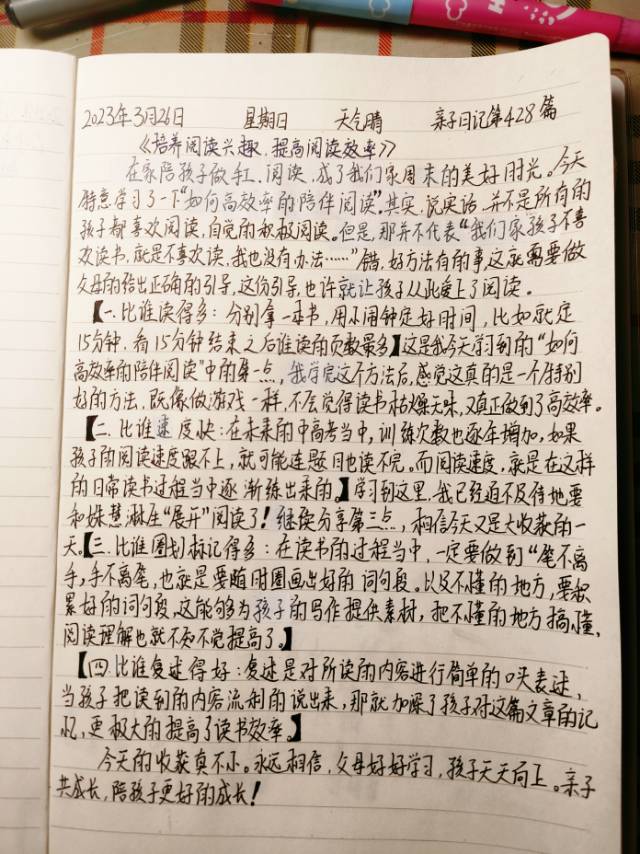 2023年3月26日 星期日 天气晴 亲子日记第428篇
《培养阅读兴趣,提高阅读效率》
在家陪孩子做手工、阅读,成了我们家周末的美好时光。今天
特意学习了一下“如何高效率的陪伴阅读”,其实,说实话,并不是所有的
孩子都喜欢阅读,自觉的积极阅读。但是,那并不代表“我们家孩子不喜
欢读书,就是不喜欢读,我也没有办法……”错,好方法有的事,这就需要做
父母的给出正确的引导,这份引导,也许就让孩子从此爱上了阅读。
【一.比谁读得多:分别拿一本书,用小闹钟定好时间,比如就定
15分钟,看15分钟结束之后谁读的页数最多】这是我今天学习到的“如何
高效率的陪伴阅读”中的第一点,我学完这个方法后,感觉这真的是一个特别
好的方法,既像做游戏一样,不会觉得读书枯燥无味,又真正做到了高效率。
【二.比谁速度快:在未来的中高考当中,训练次数也逐年增加,如果
孩子的阅读速度跟不上,就可能连题目也读不完。而阅读速度,就是在这样
的日常读书过程当中逐渐练出来的。】学习到这里,我已经迫不及待地要
和姝慧淋在“展开”阅读了!继续分享第三点,相信今天又是大收获的一
天。【三.比谁圈划标记得多:在读书的过程当中,一定要做到“笔不离
手,手不离笔,也就是要随时圈画出好的词句段。以及不懂的地方,要积
累好的词句段,这能够为孩子的写作提供素材,把不懂的地方搞懂,
阅读理解也就不知不觉提高了。】
【四.比谁复述得好:复述是对所读的内容进行简单的口头表述,
当孩子把读到的内容流利的说出来,那就加深了孩子对这篇文章的记
忆,更极大的提高了读书效率。】
今天的收获真不小。永远相信,父母好好学习,孩子天天向上。亲子
共成长,陪孩子更好的成长!